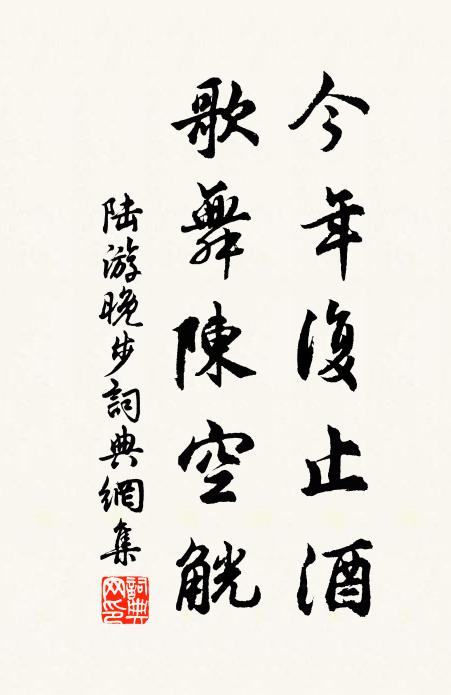 今年復止酒
歌舞陳空觥
陸游晚步詞典網集
詞典网印